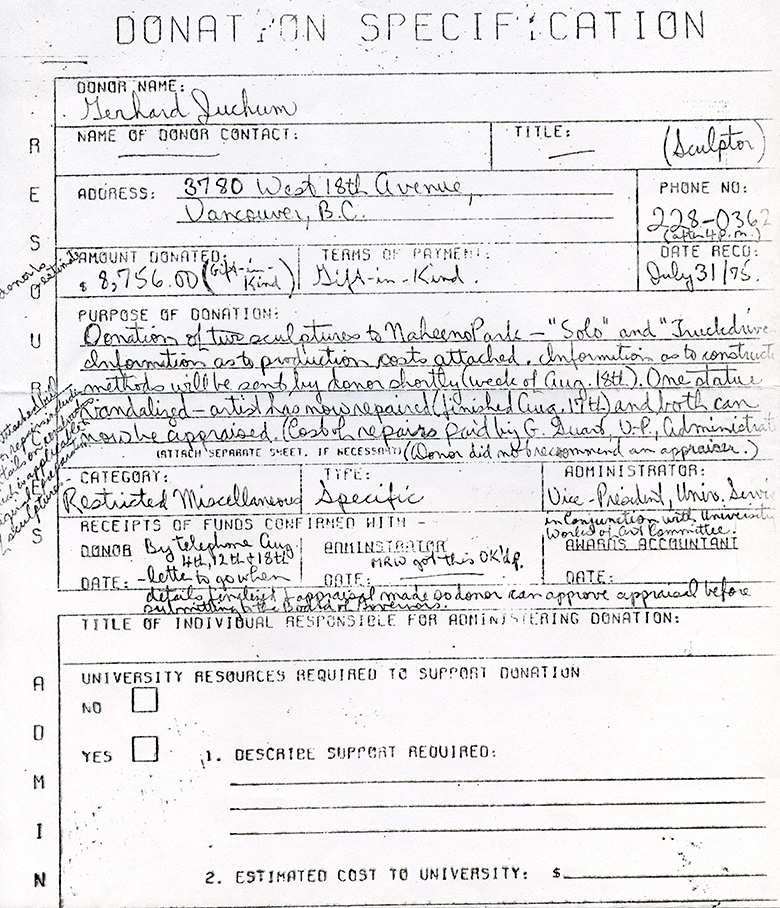 DONATION SPECIFICATION
DONOR NAME:
Gerhard Juchum
NAME OF DONOR CONTACT:
TITLE:
(Sculptor)
ADDRESS: 3780 West 18th Avenue,
Vancouver, B.C.
PHONE NO:
228-0362
(after 4 p.m.)
AMOUNT DONATED:
$ 8,756.00 (Gift-in-Kind)
TERMS OF PAYMENT:
Gift-in-Kind.
DATE RECD:
July 31/75.
donor's
PURPOSE OF DONATION:
Donation of two sculptures to Naheeno Park - "Solo" and "Truckdriver
Information as to production costs attached. Information as to construct
methods will be sent by donor shortly (week of Aug. 18th). One statue
vandalized - artist has now repaired (finished Aug. 17th) and both can
now be appraised. (Cost of repairs paid by G. Suart, V.P., Administrat
(ATTACH SEPARATE SHEET, IF NECESSARY) (Donor did not recommend an appraiser.)
sculptures.
CATEGORY:
Restricted Miscellaneous
TYPE:
Specific
ADMINISTRATOR:
Vice-President, Univ. Servic
in conjunction with University
Works of Art Committee.
RECEIPTS OF FUNDS CONFIRMED WITH -
DONOR By telephone Aug.
4th, 12th & 18th
ADMINSTRATOR
MRW got this OK'dp.
AWARDS ACCOUNTANT
DATE: - letter to go when
DATE:
DATE:
details finalized & appraisal made so donor can approve appraisal before
submitting to the Board of Governors.
RESOURS
TITLE OF INDIVIDUAL RESPONSIBLE FOR ADMINISTERING DONATION:
UNIVERSITY RESOURCES REQUIRED TO SUPPORT DONATION
NO
YES
1. DESCRIBE SUPPORT REQUIRED:
2. ESTIMATED COST TO UNIVERSITY: $
ADMIN